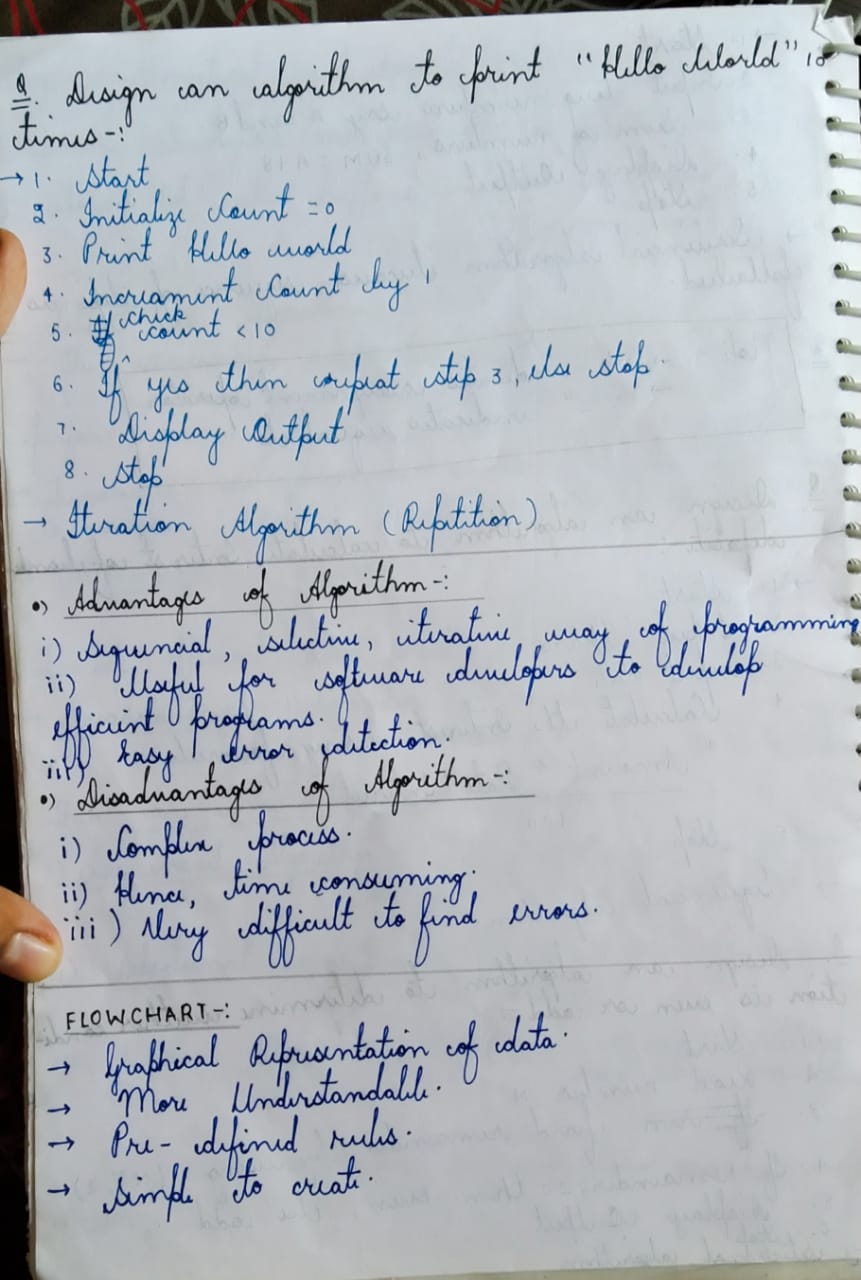 Q. Design an algorithm to print "Hello World" 10
times -:
→ 1. Start
2. Initialize Count = 0
3. Print Hello world
4. Increament Count by 1
5. check count < 10
6. If yes then repeat step 3, else stop.
7. Display Output
8. Stop
→ Iteration Algorithm (Repetition)
•) Advantages of Algorithm -:
i) Sequencial, selective, iterative way of programming
ii) Useful for software developers to develop
efficient programs.
iii) Easy error detection.
•) Disadvantages of Algorithm -:
i) Complex process.
ii) Hence, time consuming.
iii) Very difficult to find errors.
FLOWCHART -:
→ Graphical Representation of data.
→ More Understandable.
→ Pre-defined rules.
→ Simple to create.